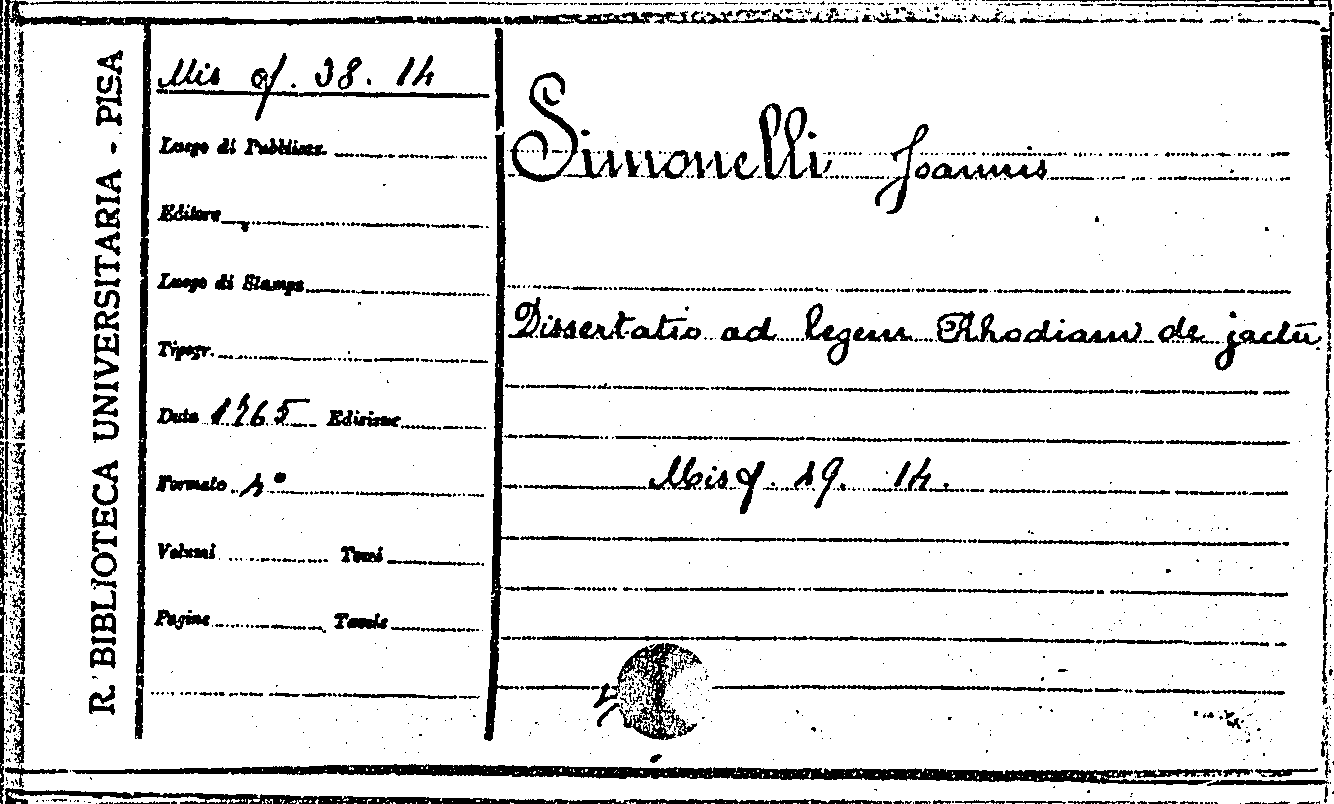 R. BIBLIOTECA UNIVERSITARIA - PISA
Mis of. 38. 14
Luogo di Pubblicaz.
Editore
Luogo di Stampa
Tipogr.
Data 1765 Edizione
Formato 4°
Volumi Tomi
Pagine Tavole
Simonelli Joannis
Dissertatio ad legem Rhodiam de jactū
Mis of. 29. 14.